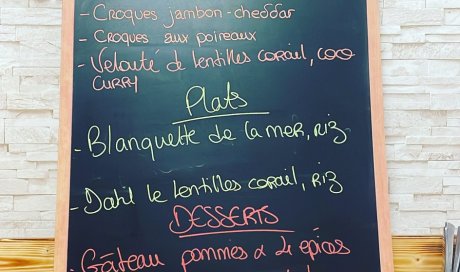 - Croques jambon-cheddar
- Croques aux poireaux
- Velouté de lentilles corail, coco
curry
Plats
- Blanquette de la mer, riz
- Dahl le lentilles corail, riz
DESSERTS
- Gâteau pommes & 4 épices